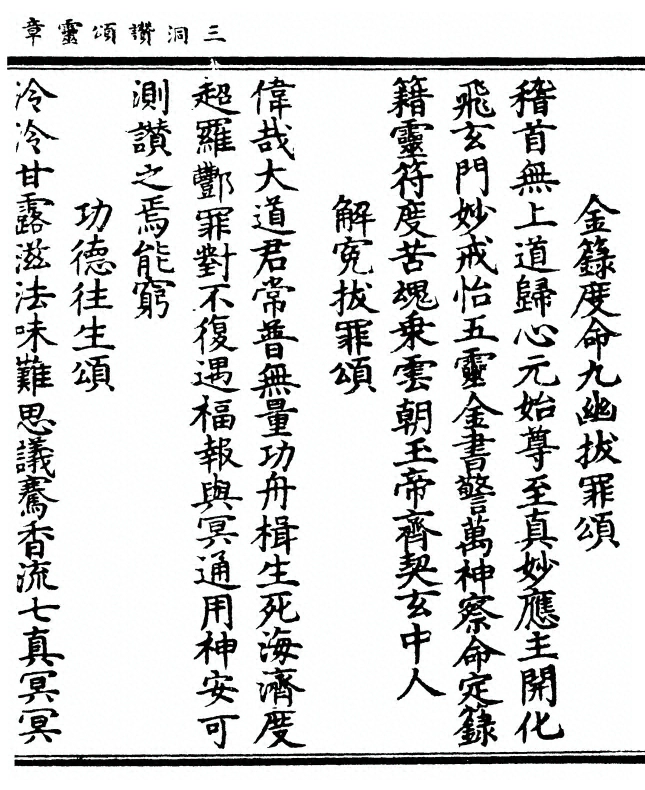 三洞讚頌靈章
金籙度命九幽拔罪頌
稽首無上道歸心元始尊至真妙應主開化
飛玄門妙戒怡五靈金書警萬神察命定籙
籍靈符度苦魂乗雲朝玉帝齊契玄中人
解寃拔罪頌
偉哉大道君常普無量功舟楫生死海濟度
超羅酆罪對不復遇福報與冥通用神安可
測讃之焉能窮
功德往生頌
泠泠甘露滋法味難思議騫香流七真冥冥